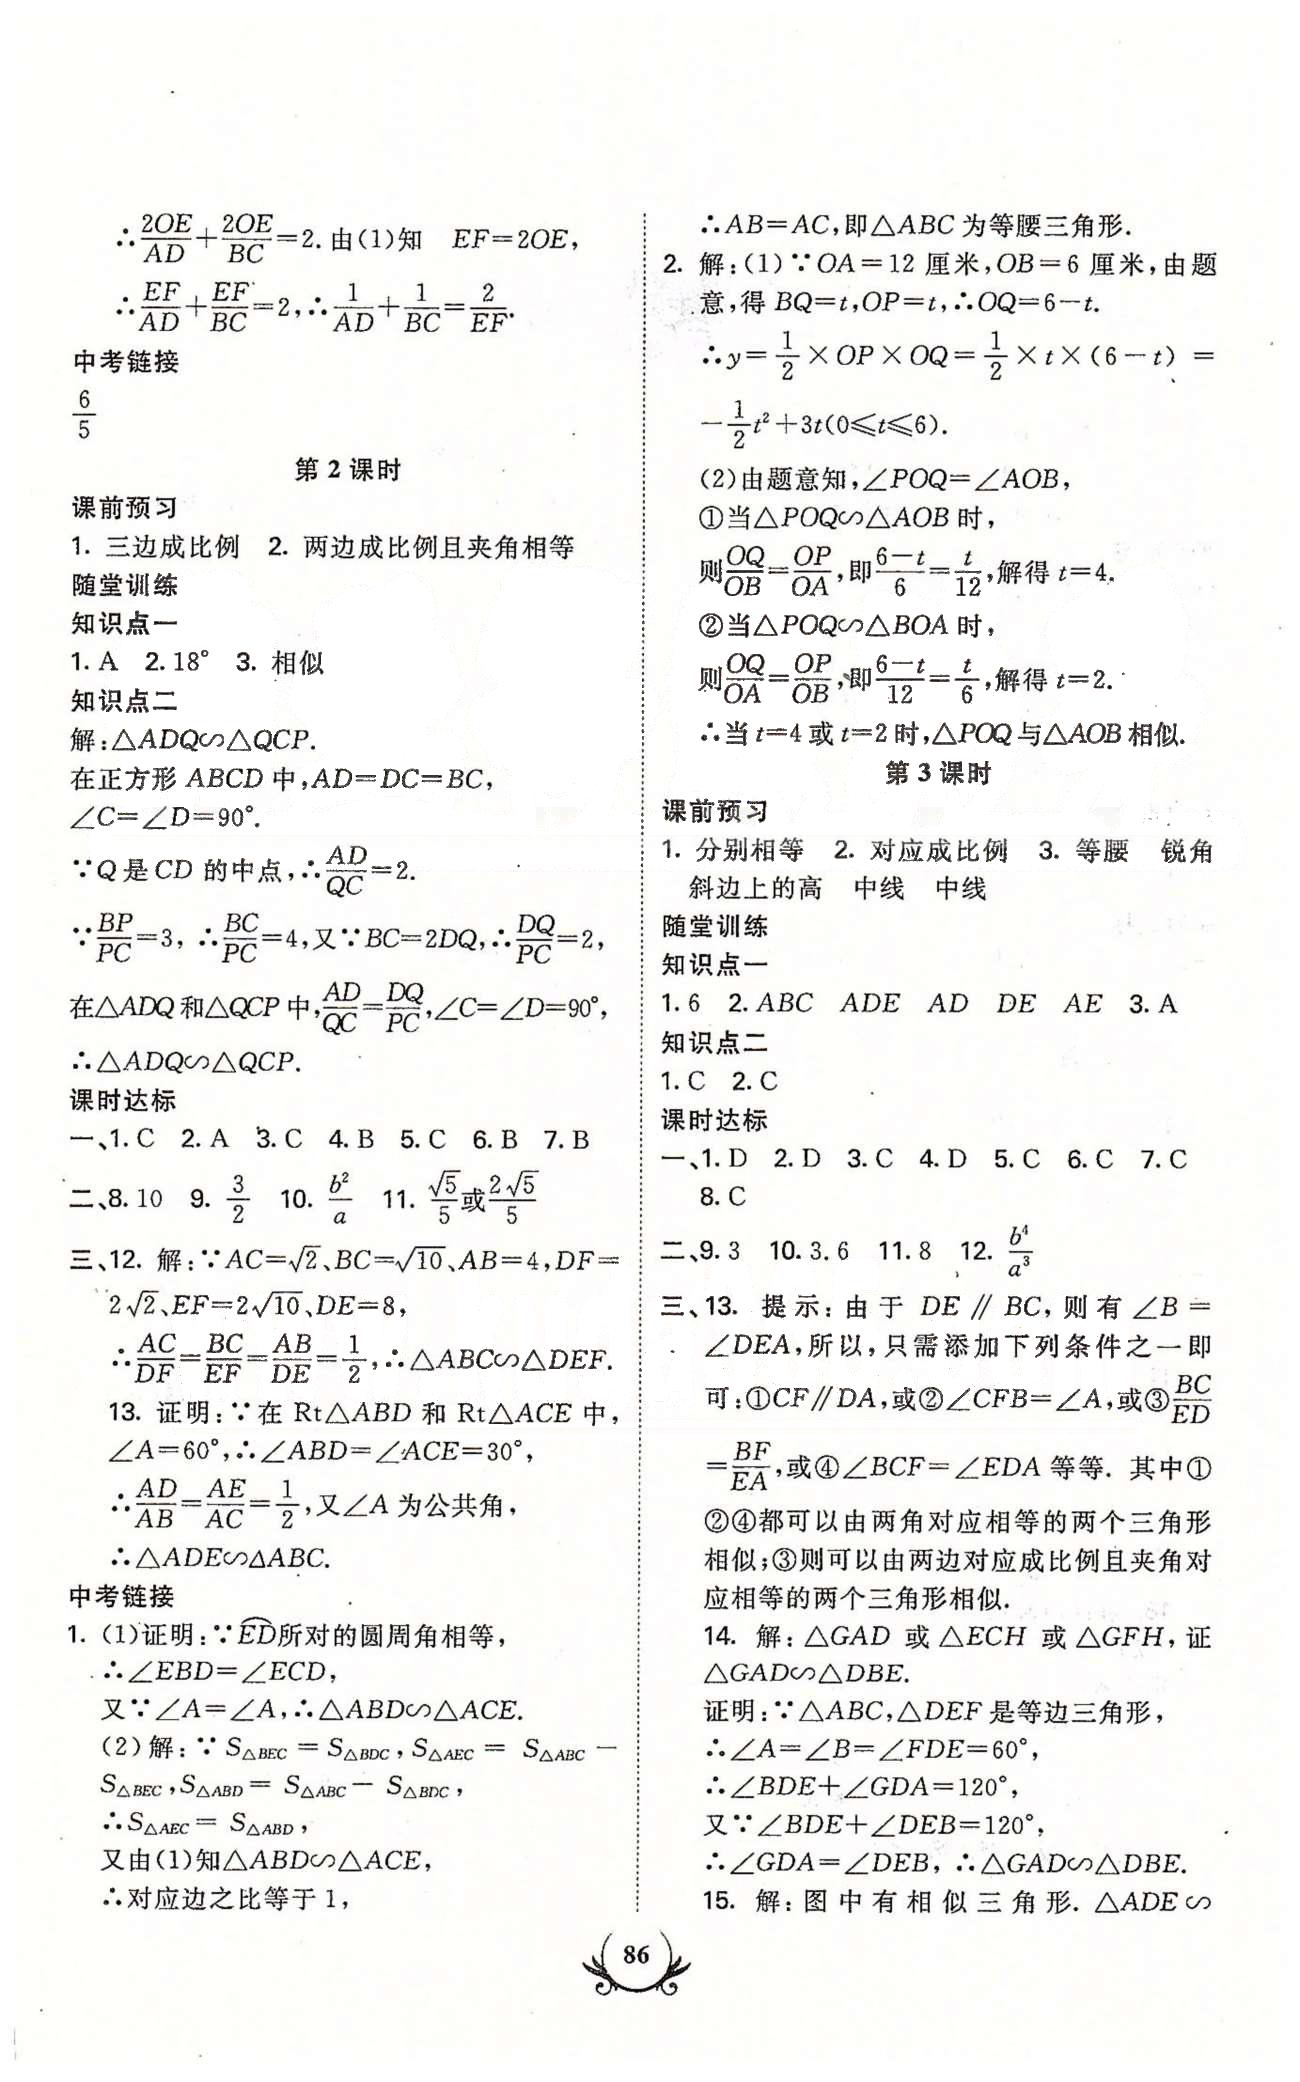 ∴2OE/AD+2OE/BC=2.由(1)知 EF=2OE,
∴EF/AD+EF/BC=2,∴1/AD+1/BC=2/EF.
中考链接
6/5
第2课时
课前预习
1. 三边成比例 2. 两边成比例且夹角相等
随堂训练
知识点一
1. A 2. 18° 3. 相似
知识点二
解:△ADQ∽△QCP.
在正方形ABCD中,AD=DC=BC,
∠C=∠D=90°.
∵Q是CD的中点,∴AD/QC=2.
∵BP/PC=3, ∴BC/PC=4,又∵BC=2DQ,∴DQ/PC=2,
在△ADQ和△QCP中,AD/QC=DQ/PC,∠C=∠D=90°,
∴△ADQ∽△QCP.
课时达标
一、1. C 2. A 3. C 4. B 5. C 6. B 7. B
二、8. 10 9. 3/2 10. b²/a 11. √5/5或2√5/5
三、12. 解:∵AC=√2、BC=√10、AB=4,DF=
2√2、EF=2√10、DE=8,
∴AC/DF=BC/EF=AB/DE=1/2,∴△ABC∽△DEF.
13. 证明:∵在Rt△ABD和Rt△ACE中,
∠A=60°,∴∠ABD=∠ACE=30°,
∴AD/AB=AE/AC=1/2,又∠A为公共角,
∴△ADE∽△ABC.
中考链接
1. (1)证明:∵⌒ED所对的圆周角相等,
∴∠EBD=∠ECD,
又∵∠A=∠A,∴△ABD∽△ACE.
(2)解:∵S△BEC=S△BDC,S△AEC=S△ABC−
S△BEC,S△ABD=S△ABC−S△BDC,
∴S△AEC=S△ABD,
又由(1)知△ABD∽△ACE,
∴对应边之比等于1,
∴AB=AC,即△ABC为等腰三角形.
2. 解:(1)∵OA=12厘米,OB=6厘米,由题
意,得BQ=t,OP=t,∴OQ=6−t.
∴y=1/2×OP×OQ=1/2×t×(6−t)=
−1/2t²+3t(0≤t≤6).
(2)由题意知,∠POQ=∠AOB,
①当△POQ∽△AOB时,
则OQ/OB=OP/OA,即6−t/6=t/12,解得t=4.
②当△POQ∽△BOA时,
则OQ/OA=OP/OB,即6−t/12=t/6,解得t=2.
∴当t=4或t=2时,△POQ与△AOB相似.
第3课时
课前预习
1. 分别相等 2. 对应成比例 3. 等腰 锐角
斜边上的高 中线 中线
随堂训练
知识点一
1. 6 2. ABC ADE AD DE AE 3. A
知识点二
1. C 2. C
课时达标
一、1. D 2. D 3. C 4. D 5. C 6. C 7. C
8. C
二、9. 3 10. 3.6 11. 8 12. b⁴/a³
三、13. 提示:由于DE∥BC,则有∠B=
∠DEA,所以,只需添加下列条件之一即
可:①CF∥DA,或②∠CFB=∠A,或③BC/ED
=BF/EA,或④∠BCF=∠EDA等等. 其中①
②④都可以由两角对应相等的两个三角形
相似;③则可以由两边对应成比例且夹角对
应相等的两个三角形相似.
14. 解:△GAD或△ECH或△GFH,证
△GAD∽△DBE.
证明:∵△ABC,△DEF是等边三角形,
∴∠A=∠B=∠FDE=60°,
∴∠BDE+∠GDA=120°,
又∵∠BDE+∠DEB=120°,
∴∠GDA=∠DEB, ∴△GAD∽△DBE.
15. 解:图中有相似三角形. △ADE∽
86